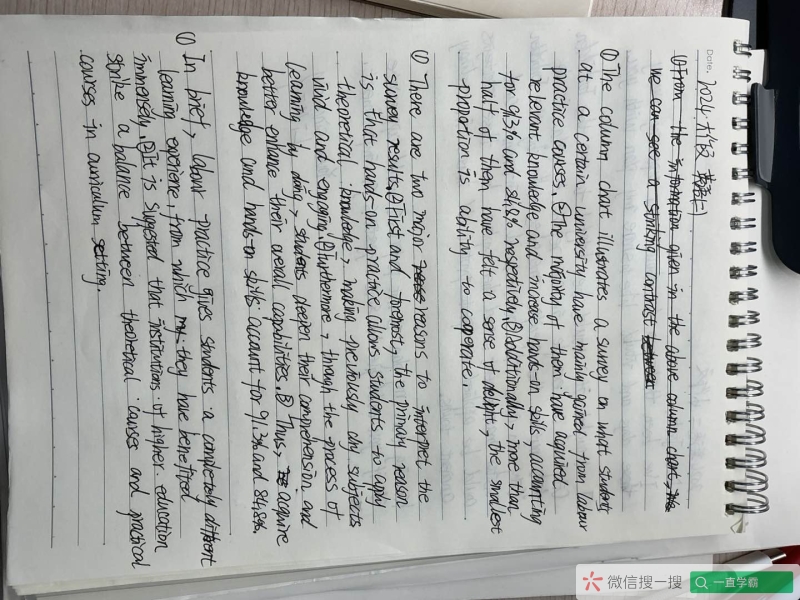 Date.
2024 大作文 英语(二)
①From the information given in the above column chart, the
we can see a striking contrast between
① The column chart illustrates a survey on what students
at a certain university have mainly gained from labour
practice causes. ②The majority of them have acquired
relevant knowledge and increase hands-on skills, accounting
for 91.3% and 84.8% respectively. ③Additionally, more than
half of them have felt a sense of delight, the smallest
proportion is ability to cooperate.
① There are two major reasons to interpret the
survey results. ②First and foremost, the primary reason
is that hands-on practice allows students to apply
theoretical knowledge, making previously dry subjects
vivid and engaging. ③Furthermore, through the process of
learning by doing, students deepen their comprehension and
better enhance their overall capabilities. ④ Thus, acquire
knowledge and hands-on skills account for 91.3% and 84.8%.
① In brief, labour practice gives students a completely different
learning experience from which they have benefited
immensely. ②It is suggested that institutions of higher education
strike a balance between theoretical causes and practical
causes in curriculum setting.
微信搜一搜
一直学霸